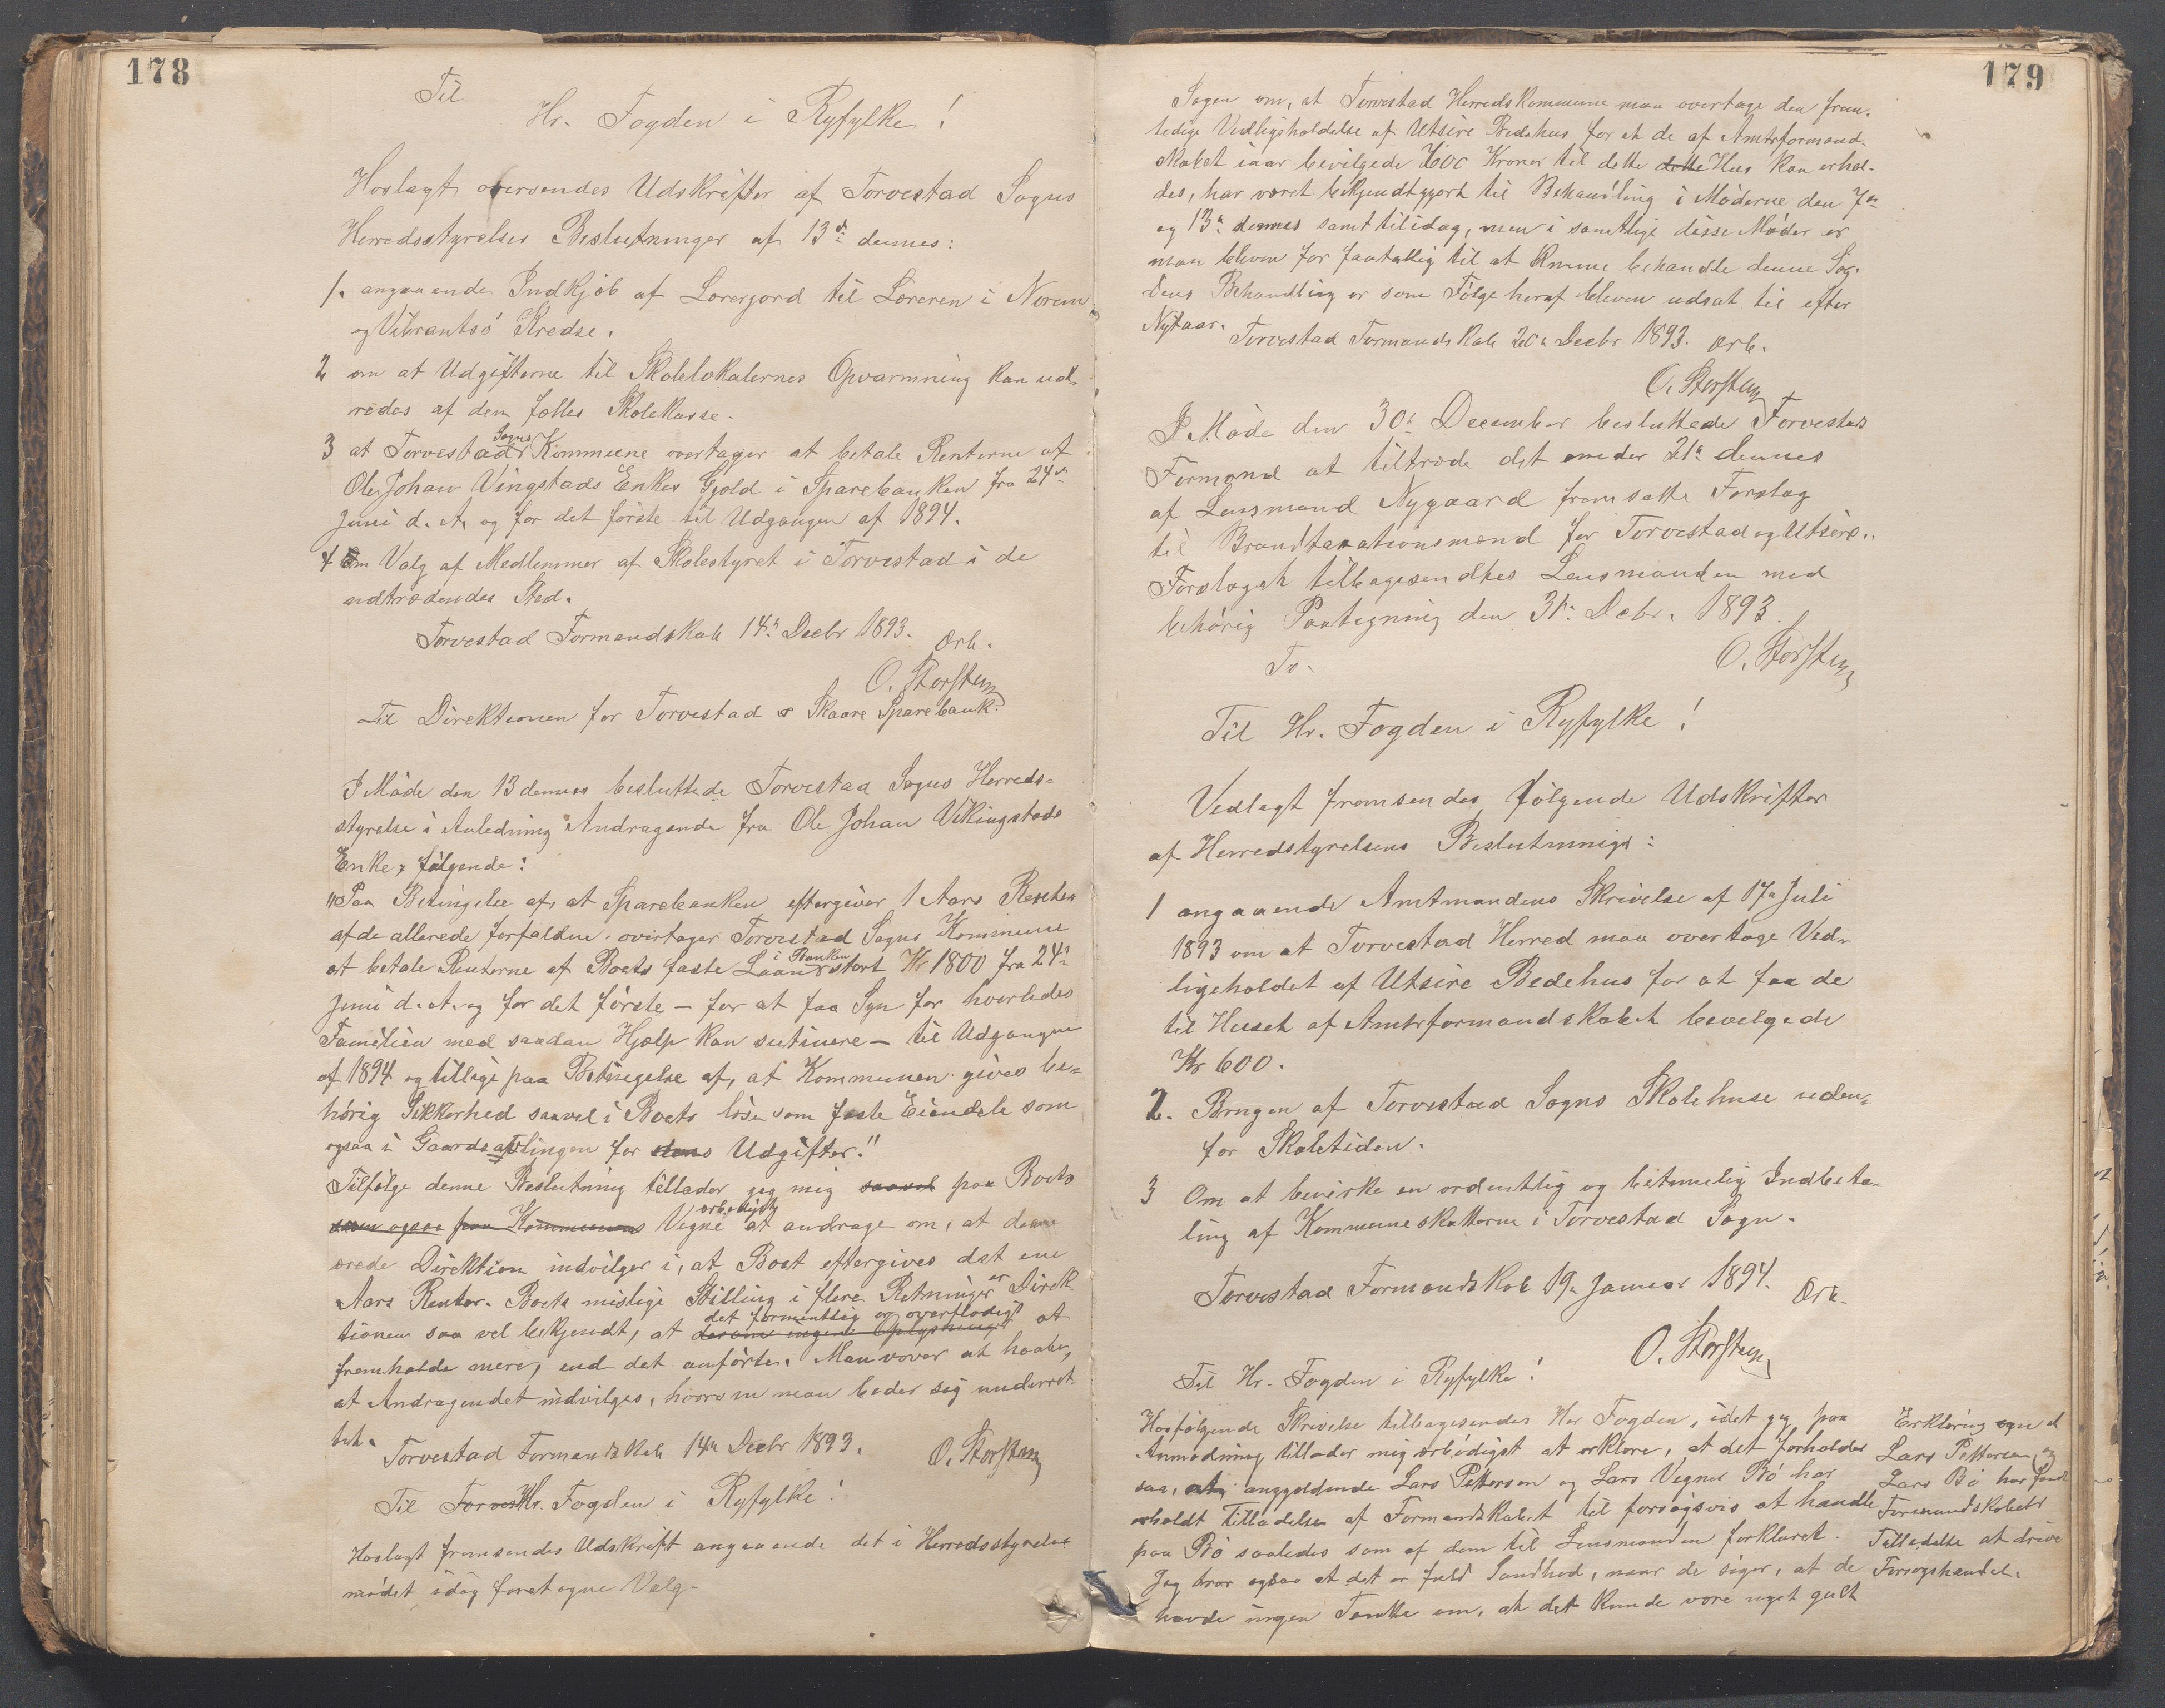 178
Til
Hr. Fogden i Ryfylke!
Hoslagt oversendes Udskrifter af Torvestad Sogns
Herredsstyrelses Beslutninger af 13de dennes:
1. angaaende Indkjøb af Lærerjord til Læreren i Norem
og Vibrantsø Kredse.
2 om at Udgifterne til Skolelokalernes Opvarmning kan ud-
redes af den fælles Skolekasse.
3 at Torvestad Sogns Kommune overtager at betale Renterne af
Ole Johan Vingstads Enkes Gjæld i Sparebanken fra 24de
Juni d. A. og for det første til Udgangen af 1894.
4 Om Valg af Medlemmer af Skolestyret i Torvestad i de
udtrædendes Sted.
Torvestad Formandskab 14de Decbr 1893. Ærb.
O. Storsten
Til Direktionen for Torvestad & Skaare Sparebank.
I Møde den 13 dennes besluttede Torvestad Sogns Herreds-
styrelse i Anledning Andragende fra Ole Johan Vikingstads
Enke, følgende:
"Paa Betingelse af, at Sparebanken eftergiver 1 Aars Renter
af de allerede forfaldne overtager Torvestad Sogns Kommune
at betale Renterne af Boets faste Laan i Banken stort Kr 1800 fra 24de
Juni d. A. og for det første - for at faa Syn for hvorledes
Familien med saadan Hjælp kan sutinere - til Udgangen
af 1894 og tillige paa Betingelse af, at Kommunen gives be-
hørig Sikkerhed saavel i Boets løse som faste Eiendele som
ogsaa i Gaardsavlingen for dens Udgifter."
Tilfølge denne Beslutning tillader jeg mig saavel paa Boets
som ogsaa paa Kommunens Vegne ærbødigst at andrage om, at den
ærede Direktion indvilger i, at Boet eftergives det ene
Aars Renter. Boets mislige Stilling i flere Retninger er Direk
tionen saa vel bekjendt, at det formentlig er overflødigt at
fremholde mere, end det anførte. Man vover at haabe,
at Andragendet indvilges, hvorom man beder sig underret-
tet.
Torvestad Formandskab 14de Decbr 1893. O. Storsten
Til Torves Hr. Fogden i Ryfylke!
Hoslagt fremsendes Udskrift angaaende det i Herredsstyrelse
mødet idag foretagne Valg.
179
Sagen om, at Torvestad Herredskommune maa overtage den frem-
tidige Vedligeholdelse af Utsire Bedehus for at de af Amtsformand-
skabet iaar bevilgede 600 Kroner til dette dette Hus kan erhol-
des, har været bekjendtgjort til Behandling i Møderne den 7de
og 13de dennes samt til idag, men i samtlige disse Møder er
man bleven for faatallig til at kunne behandle denne Sag.
Dens Behandling er som Følge heraf bleven udsat til efter
Nytaar.
Torvestad Formandskab 20de Decbr 1893. Ærb.
O. Storsten
I Møde den 30te December besluttede Torvestads
Formand at tiltræde det under 21de dennes
af Lensmand Nygaard fremsatte Forslag
til Brandtaxationsmænd for Torvestad og Utsire.
Forslaget tilbagesendtes Lensmanden med
behørig Paategning den 31te Decbr. 1893.
O. Storsten
Til Hr. Fogden i Ryfylke!
Vedlagt fremsendes følgende Udskrifter
af Herredstyrelsens Beslutninger:
1 angaaende Amtmandens Skrivelse af 17de Juli
1893 om at Torvestad Herred maa overtage Ved-
ligeholdet af Utsire Bedehus for at faa de
til Huset af Amtsformandskabet bevilgede
Kr 600.
2. Brugen af Torvestad Sogns Skolehuse uden-
for Skoletiden.
3 Om at bevirke en ordentlig og betimelig Indbeta-
ling af Kommuneskatterne i Torvestad Sogn.
Torvestad Formandskab 19de Januar 1894. Ærb.
O. Storsten
Til Hr. Fogden i Ryfylke!
Hosfølgende Skrivelse tilbagesendes Hr Fogden, idet jeg paa
Anmodning tillader mig ærbødigst at erklære, at det forholder
saa, at angjældende Lars Pettersen og Lars Vegner Bø har
erholdt Tilladelse af Formandskabet til forsøgsvis at handle
paa Bø saaledes som af dem til Lensmanden forklaret.
Jeg tror ogsaa at det er fuld Sandhed, naar de siger, at de
havde ingen Tanke om, at det kunde være noget galt
Erklæring
Lars Pettersen og
Lars Bø har faaet
Formandskabets
Tilladelse at drive
Forsøgshandel.